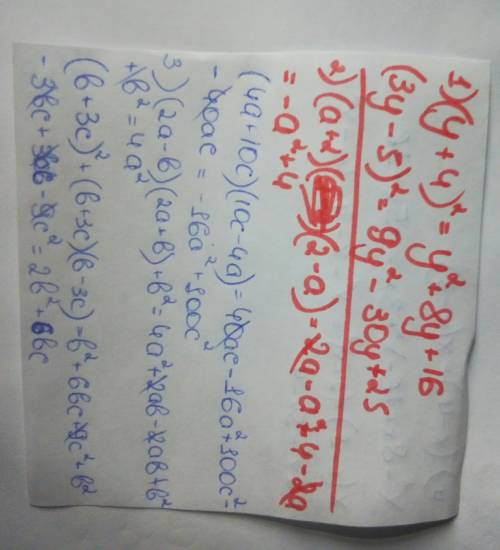 1) (y + 4)² = y² + 8y + 16
(3y - 5)² = 9y² - 30y + 25
2) (a+2)(2-a) = 2a - a² + 4 - 2a
= -a² + 4
(4a + 10c)(10c - 4a) = 40ac - 16a² + 100c² -
- 40ac = -16a² + 100c²
3) (2a - b)(2a + b) + b² = 4a² + 2ab - 2ab + b²
+ b² = 4a²
(b + 3c)² + (b + 3c)(b - 3c) = b² + 6bc + 9c² + b²
- 3bc + 3cb - 9c² = 2b² + 6bc